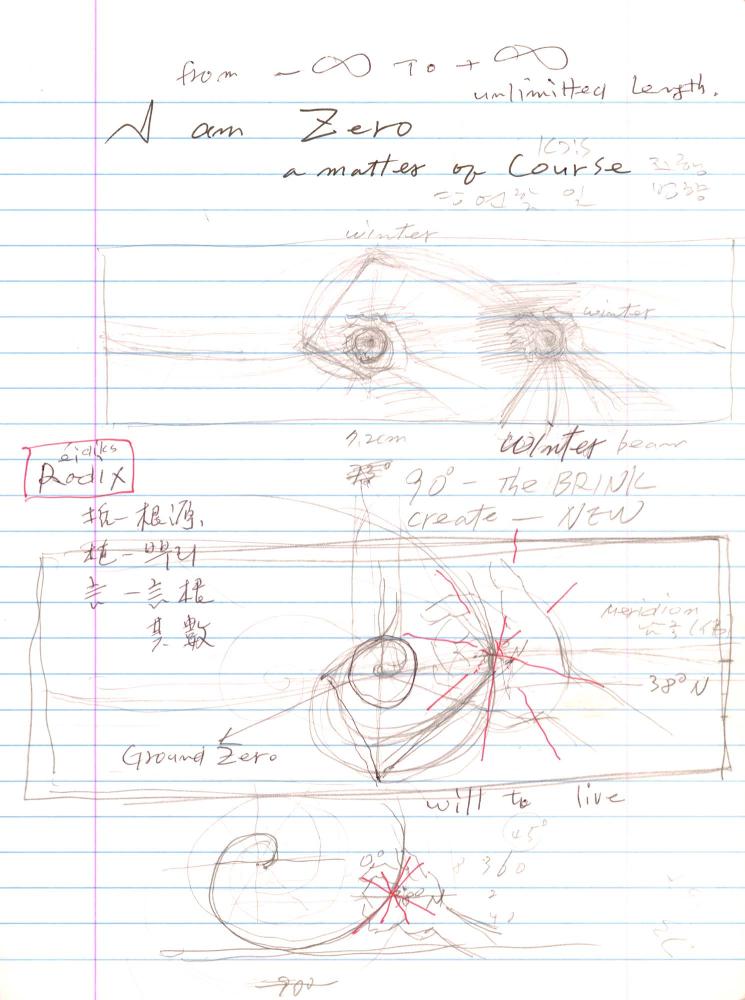 from -∞ To +∞
unlimitted Length.
I am Zero
a matter of Course
winter
winter
7.2cm
winter beam
Radix
90° - The BRINK
create - NEW
根源.
뿌리
言 - 言根
基數
Meridian
N
38° N
Ground Zero
will to live
45°
0°
360
N
90°